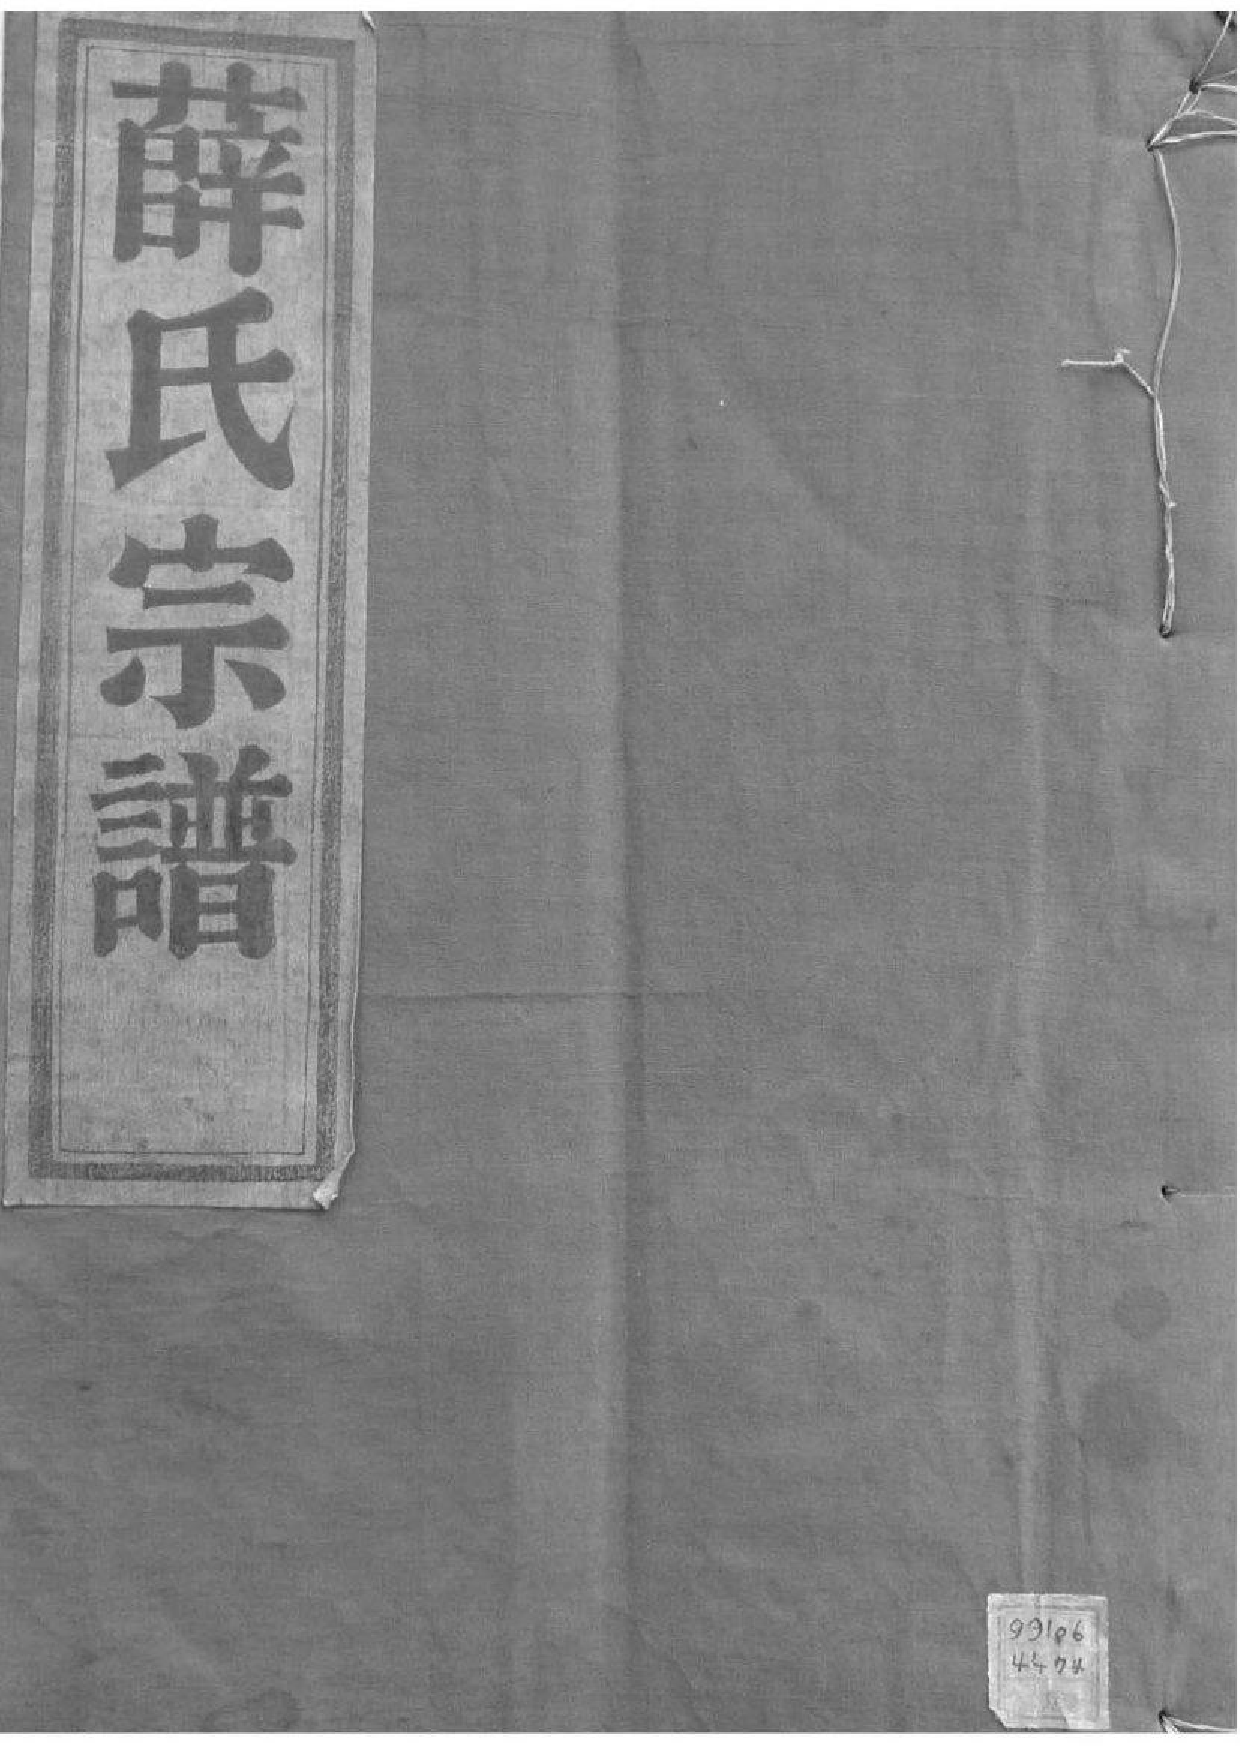 薛氏宗譜
991p6
4474